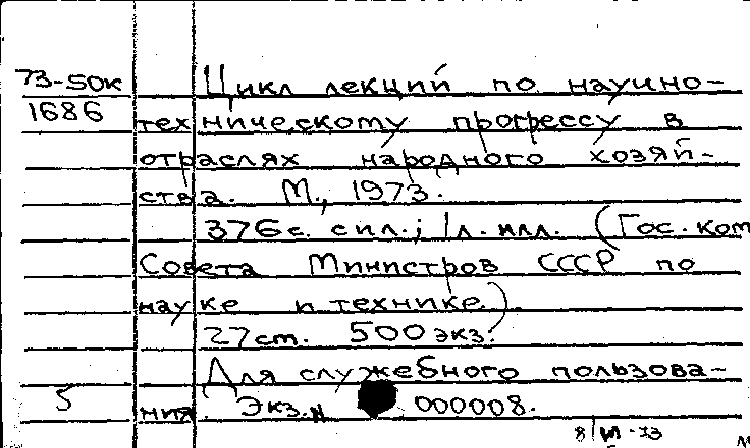 73-50к Цикл лекций по научно-
1686 техническому прогрессу в
отраслях народного хозяй-
ства. М., 1973.
376с. с ил.; 1л. илл. (Гос. ком
Совета Министров СССР по
науке и технике).
27см. 500 экз.
Для служебного пользова-
5 ния. Экз. N 000008.
8/VI-73